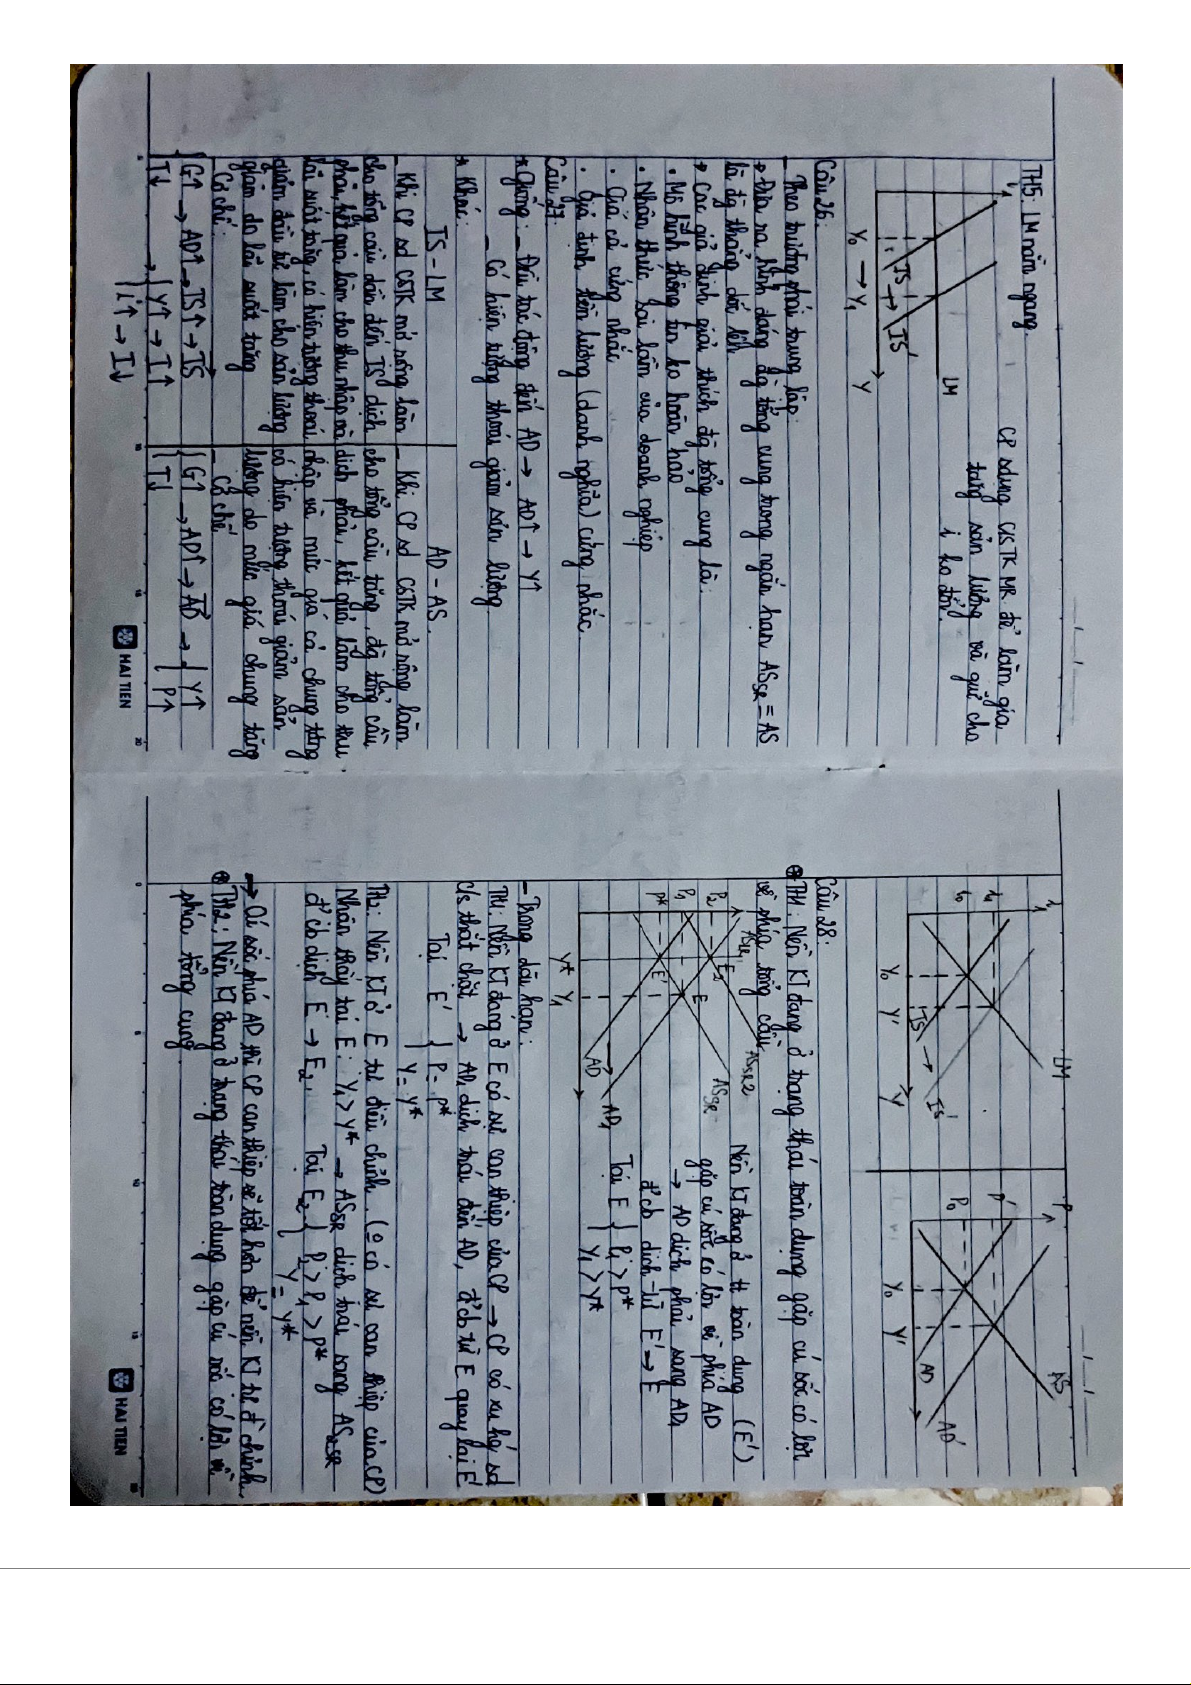 TH5: LM nằm ngang.
i
IS → IS'
LM
Y₀ → Y₁
Y
CP sdung CSTK MR để làm gia
tăng sản lượng và giữ cho
i ko đổi.
Câu 26:
- Theo trường phái trung lập:
→ Đưa ra hình dáng đg tổng cung trong ngắn hạn AS_SR = AS
là đg thẳng dốc lên
→ Các giả định giải thích đg tổng cung là:
• Mô hình thông tin ko hoàn hảo
• Nhận thức sai lầm của doanh nghiệp
• Giá cả cứng nhắc
• Giả định tiền lương (danh nghĩa) cứng nhắc.
Câu 27:
* Giống: - Đều tác động đến AD → AD↑ → Y↑
- Có hiện tượng thoái giảm sản lượng
* Khác:
IS - LM
- Khi CP sd CSTK mở rộng làm
cho tổng cầu dẫn đến IS dịch
phải, kết quả làm cho thu nhập và
lãi suất tăng, có hiện tượng thoái
giảm đầu tư làm cho sản lượng
giảm do lãi suất tăng
- Cơ chế:
G↑ → AD↑ → IS↑ → IS
T↓ → Y↑ → I↑
i↑ → I↓
AD - AS.
- Khi CP sd CSTK mở rộng làm
cho tổng cầu tăng, đg tổng cầu
dịch phải, kết quả làm cho thu
nhập và mức giá cả chung tăng
có hiện tượng thoái giảm sản
lượng do mức giá chung tăng
- Cơ chế
G↑ → AD↑ → AD → Y↑
T↓ P↑
HAI TIEN
i
LM
i₁
i₀
IS → IS'
Y₀ Y' Y
P
AS
P'
P₀
AD AD'
Y₀ Y'
Câu 28:
⊛ TH1: Nền KT đang ở trạng thái toàn dụng gặp cú sốc có lợi
về phía tổng cầu
AS_SR2
AS_SR
P₂ E₂
P₁ E
P* E'
AD → AD₁
Y* Y₁
Nền KT đang ở tt toàn dụng (E')
gặp cú sốc có lợi về phía AD
→ AD dịch phải sang AD₁
đ'cb dịch từ E' → E
Tại E { P₁ > P*
Y₁ > Y*
- Trong dài hạn:
TH1: Nền KT đang ở E có sự can thiệp của CP → CP có xu hg sd
c/s thắt chặt → AD₁ dịch trái đến AD, đ'cb từ E quay lại E'
Tại E' { P = P*
Y = Y*
TH2: Nền KT ở E tự điều chỉnh. (0 có sự can thiệp của CP)
Nhận thấy tại E: Y₁ > Y* → AS_SR dịch trái sang AS_2SR
đ'cb dịch E → E₂. Tại E₂ { P₂ > P₁ > P*
Y = Y*
→ Cú sốc phía AD thì CP can thiệp sẽ tốt hơn để nền KT tự đ' chỉnh.
⊛ TH2: Nền KT đang ở trạng thái toàn dụng gặp cú sốc có lợi về
phía tổng cung
HAI TIEN